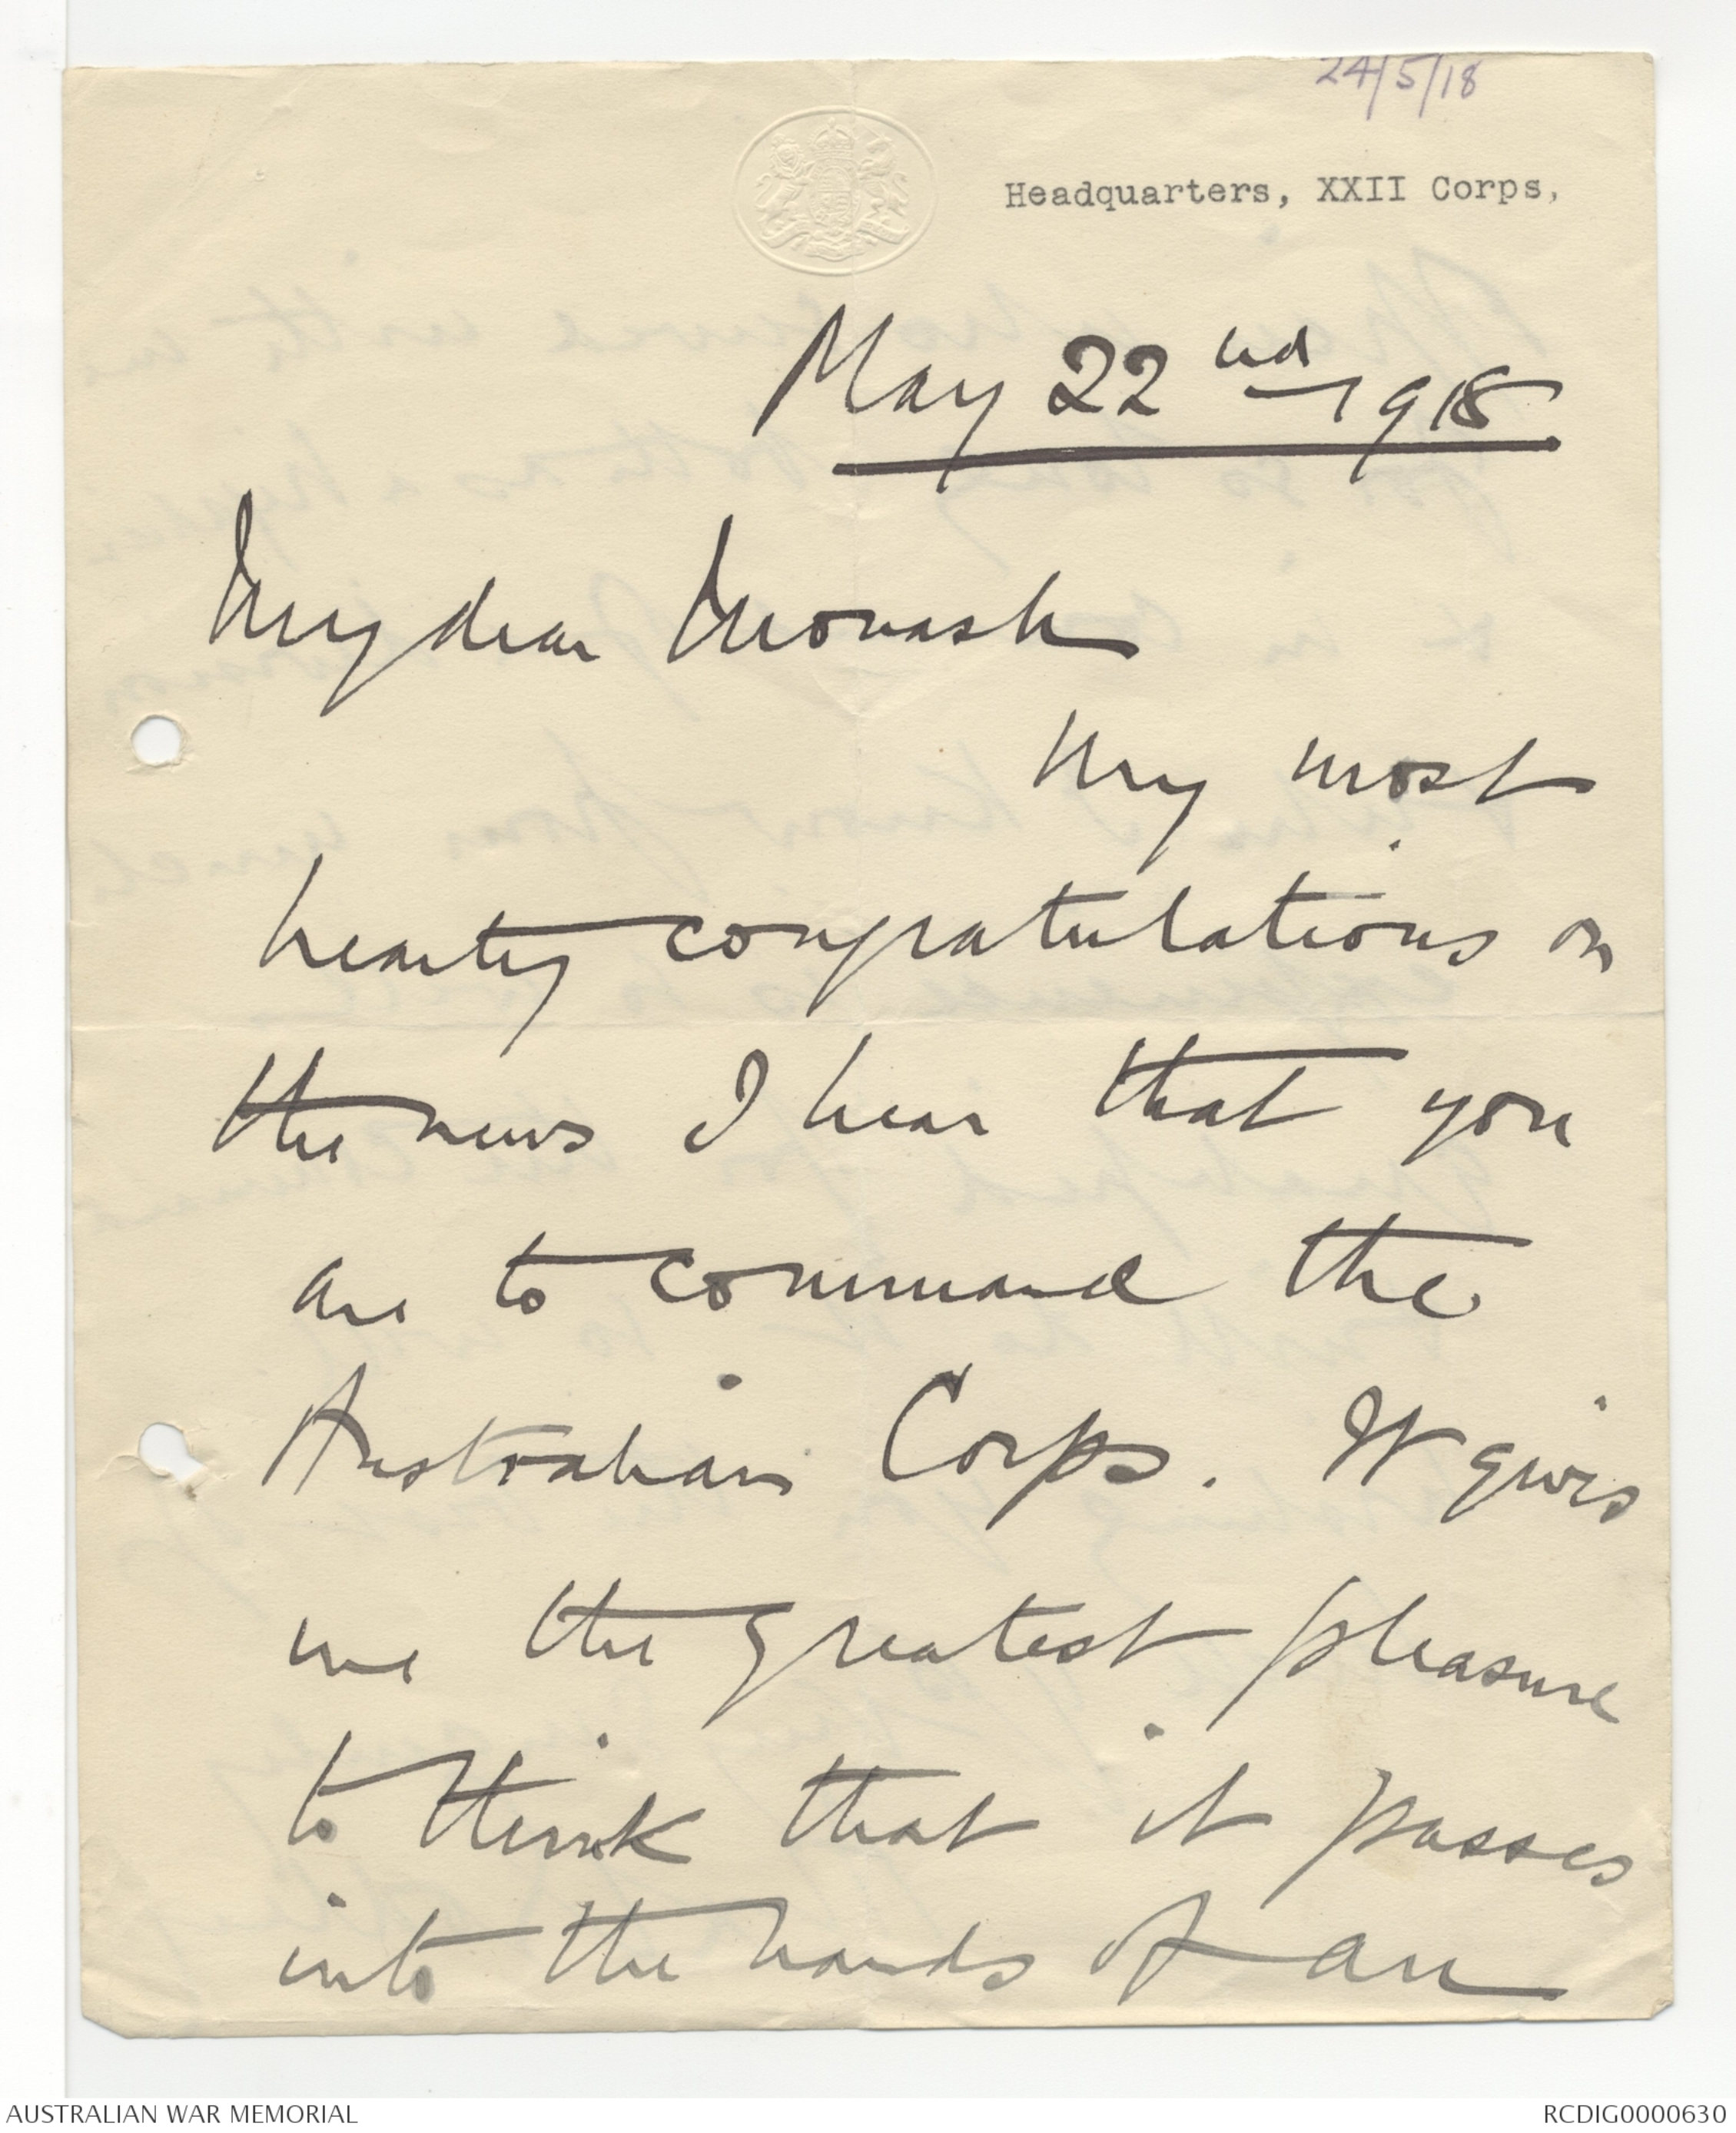 24/5/18
Headquarters, XXII Corps,
May 22nd 1918
My dear Monash
My most
hearty congratulations on
the news I hear that you
are to command the
Australian Corps. It gives
me the greatest pleasure
to think that it passes
into the hands of an
AUSTRALIAN WAR MEMORIAL
RCDIG0000630